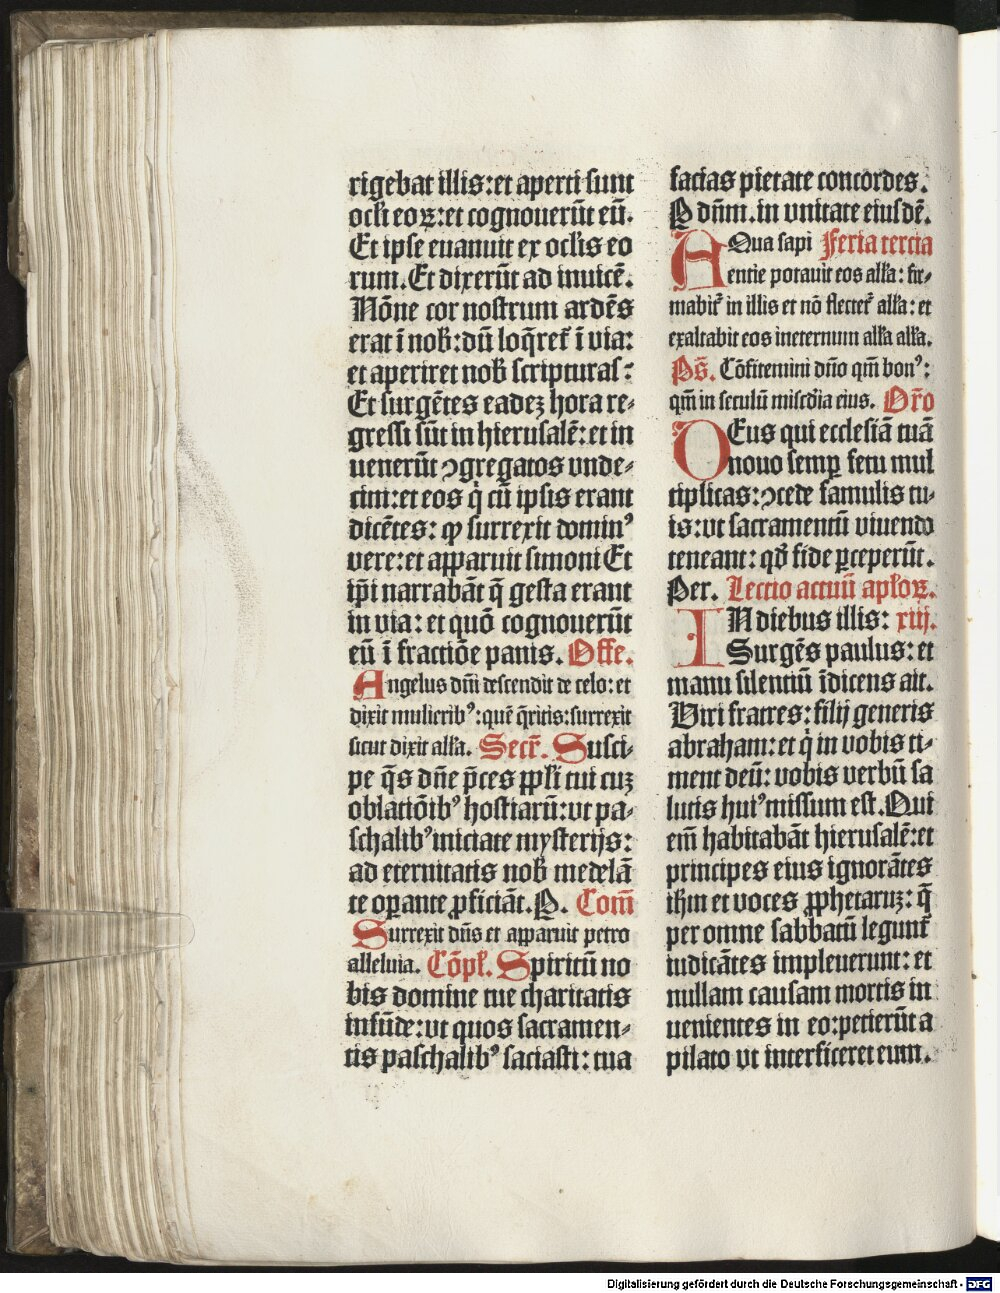 rigebat illis: et aperti sunt
ocl̕i eoꝝ: et cognouerūt eū.
Et ipse euanuit ex ocl̕is eo
rum. Et dixerūt ad inuicē.
Nōne cor nostrum ardēs
erat ī nob̕: dū loq̄ret̕ ī via:
et aperiret nob̕ scripturas?
Et surgētes eadeꝫ hora re⸗
gressi sūt in hierusalē: et in
uenerūt ꝯgregatos vnde⸗
cim: et eos q̇ cū ipsis erant
dicētes: ꝙ surrexit domin⁹
vere: et apparuit simoni Et
ip̄i narrabāt q̄ gesta erant
in via: et quō cognouerūt
eū ī fractiōe panis. Offe.
Angelus dn̄i descendit de celo: et
dixit mulierib⁹: quē q̄ritis: surrexit
sicut dixit all̕a. Secr̄. Susci⸗
pe q̄s dn̄e p̄ces ppl̕i tui cuꝫ
oblatiōib⁹ hostiarū: vt pa⸗
schalib⁹ iniciate mysterijs:
ad eternitatis nob̕ medelā
te oꝑante ꝓficiāt. P. Com̄
Surrexit dn̄s et apparuit petro
alleluia. Cōpl̕. Spiritū no
bis domine tue charitatis
infūde: vt quos sacramen⸗
tis paschalib⁹ saciasti: tua
facias pietate concordes.
P dn̄m. in vnitate eiusdē.
AQua sapi Feria tercia
entie potauit eos all̕a: fir⸗
mabit̕ in illis et nō flectet̕ all̕a: et
exaltabit eos ineternum all̕a all̕a.
Ps̄. Cōfitemini dn̄o qm̄ bon⁹:
qm̄ in seculū misc̄dia eius. Or̄o
DEus qui ecclesiā tuā
nouo semꝑ fetu mul
tiplicas: ꝯcede famulis tu⸗
is: vt sacramentū viuendo
teneant: qd̕ fide ꝑceperūt.
Per. Lectio actuū apl̕oꝝ.
IN diebus illis: xiij.
Surgēs paulus: et
manu silentiū īdicens ait.
Viri fratres: filij generis
abraham: et q̇ in vobis ti⸗
ment deū: vobis verbū sa
lutis hui⁹ missum est. Qui
em̄ habitabāt hierusalē: et
principes eius ignorātes
ih̄m et voces ꝓphetaruꝫ: q̄
per omne sabbatū legunt̕
iudicātes impleuerunt: et
nullam causam mortis in
uenientes in eo: petierūt a
pilato vt interficeret eum.
Digitalisierung gefördert durch die Deutsche Forschungsgemeinschaft - DFG